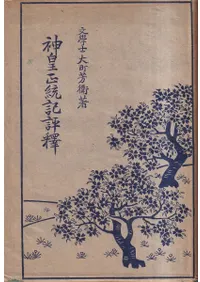 文學士 大町芳衞著
神皇正統記評釋